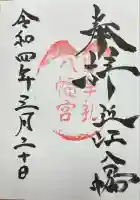 奉拝
近江八幡
八幡宮
令和四年三月三十日